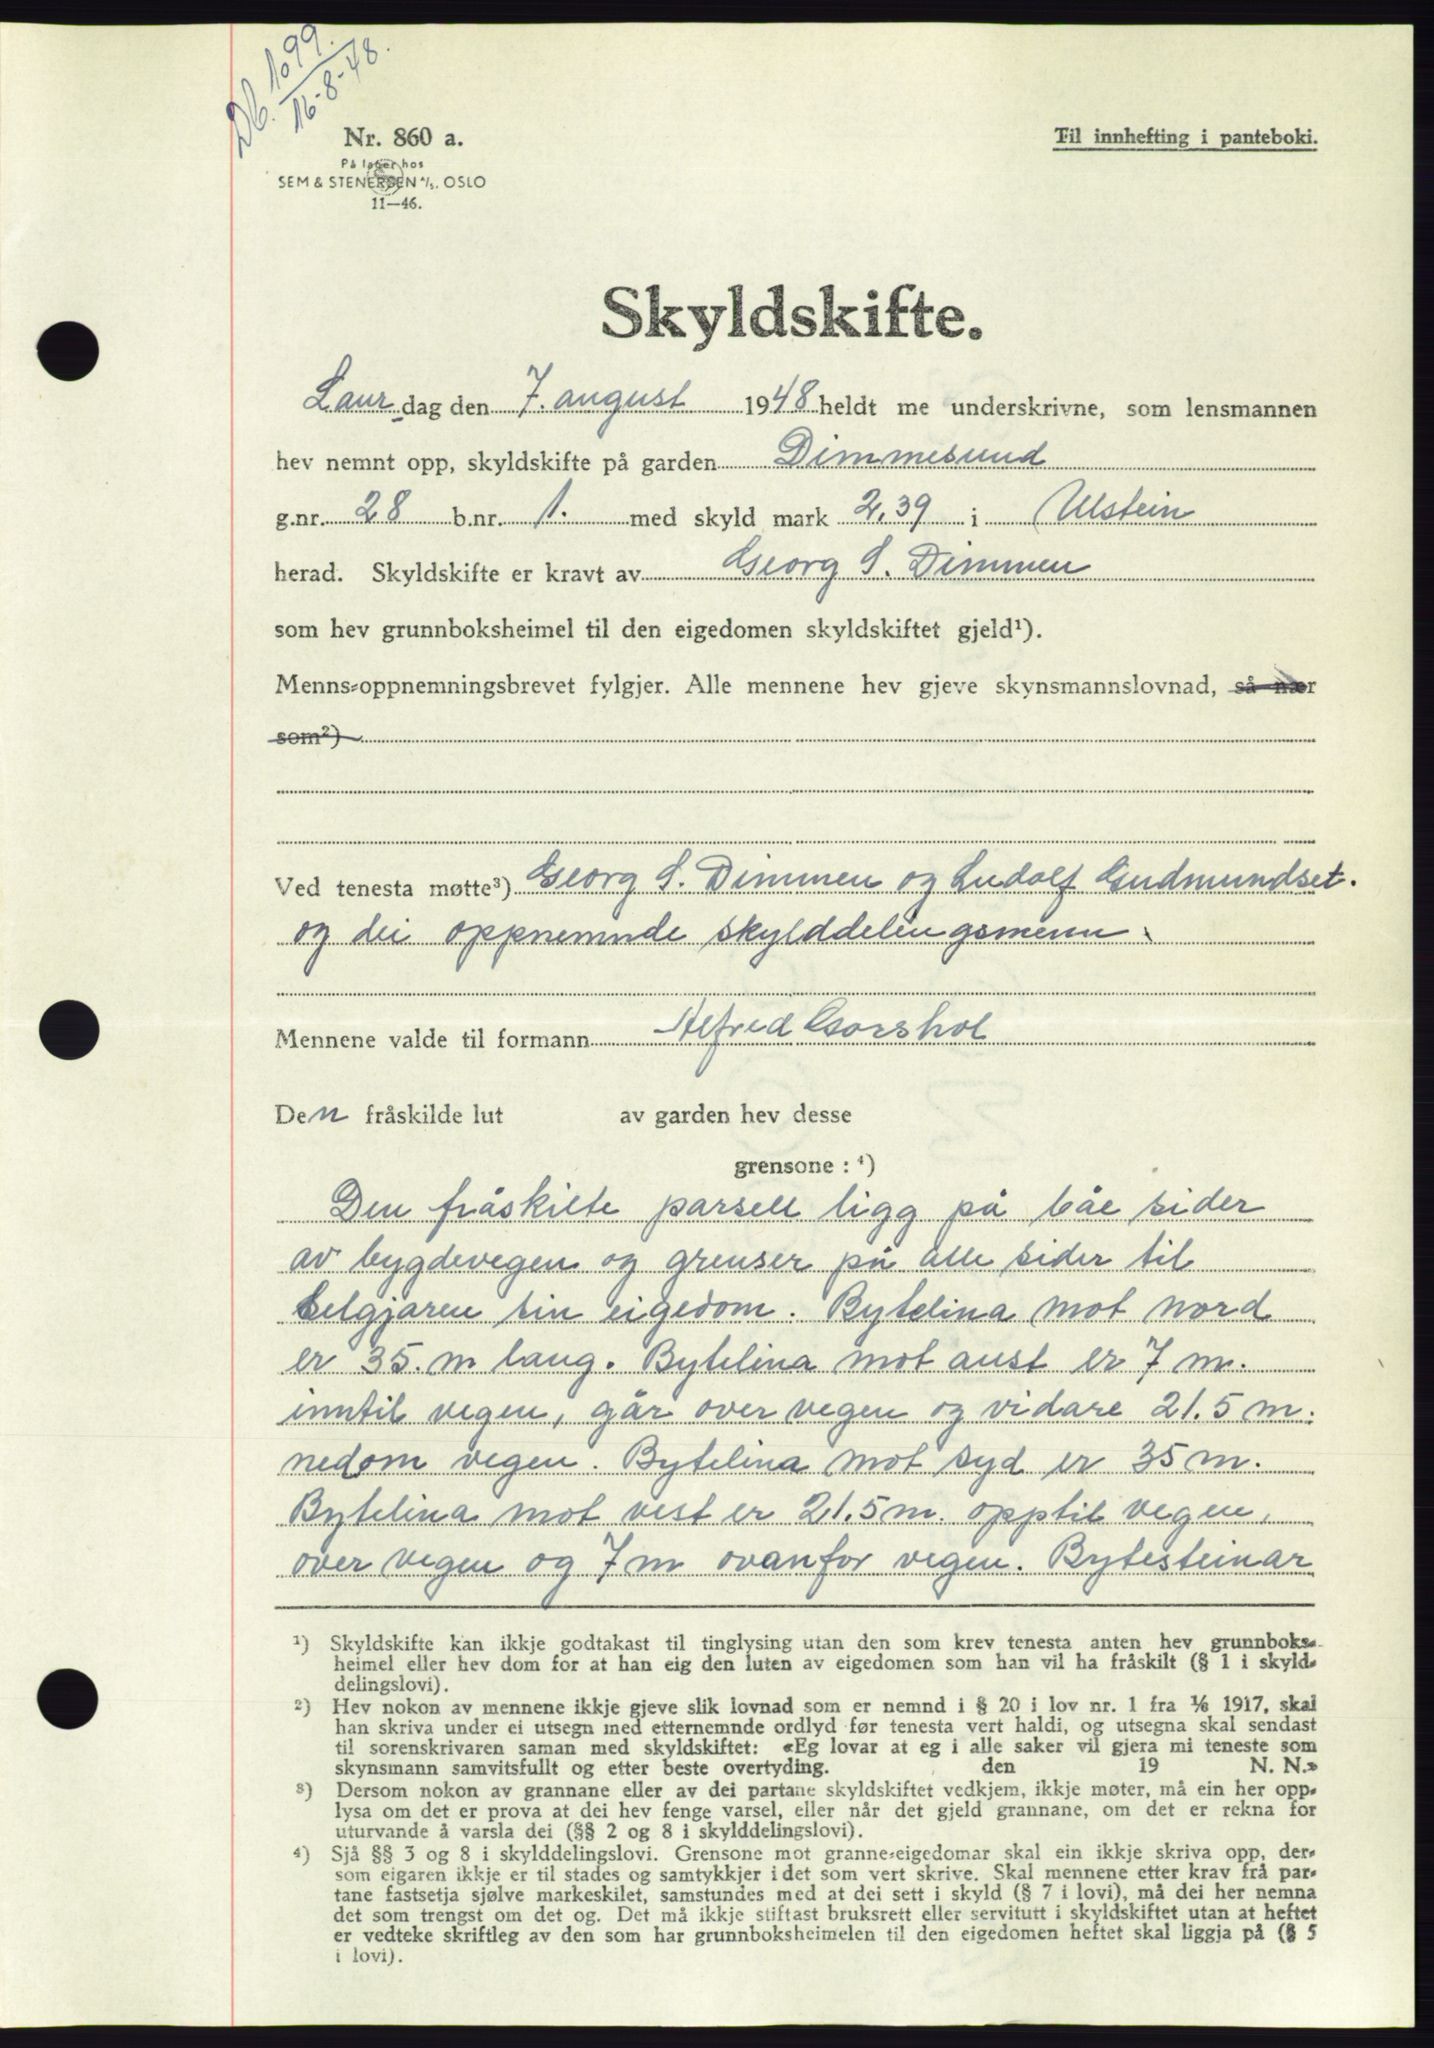 Db. 1099.
16-8-48.
Nr. 860 a.
På lager hos
SEM & STENERSEN A/S. OSLO
11—46.
Til innhefting i panteboki.
Skyldskifte.
Laurdag den 7. august 1948 heldt me underskrivne, som lensmannen
hev nemnt opp, skyldskifte på garden Dimmesund
g.nr. 28 b.nr. 1. med skyld mark 2,39 i Ulstein
herad. Skyldskifte er kravt av Georg S. Dimmen
som hev grunnboksheimel til den eigedomen skyldskiftet gjeld¹).
Menns-oppnemningsbrevet fylgjer. Alle mennene hev gjeve skynsmannslovnad, så nær
som²)
Ved tenesta møtte³) Georg S. Dimmen og Ludolf Gudmundset.
og dei oppnemnde skylddelingsmenn.
Mennene valde til formann Alfred Garshol
Den fråskilde lut av garden hev desse
grensone : ⁴)
Den fråskilte parsell ligg på båe sider
av bygdevegen og grenser på alle sider til
selgjaren sin eigedom. Bytelina mot nord
er 35. m lang. Bytelina mot aust er 7 m.
inntil vegen, går over vegen og vidare 21.5 m.
nedom vegen. Bytelina mot syd er 35 m.
Bytelina mot vest er 21.5 m. opptil vegen,
over vegen og 7 m ovanfor vegen. Bytesteinar
¹) Skyldskifte kan ikkje godtakast til tinglysing utan den som krev tenesta anten hev grunnboks-
heimel eller hev dom for at han eig den luten av eigedomen som han vil ha fråskilt (§ 1 i skyld-
delingslovi).
²) Hev nokon av mennene ikkje gjeve slik lovnad som er nemnd i § 20 i lov nr. 1 fra 1/6 1917, skal
han skriva under ei utsegn med etternemnde ordlyd før tenesta vert haldi, og utsegna skal sendast
til sorenskrivaren saman med skyldskiftet: «Eg lovar at eg i alle saker vil gjera mi teneste som
skynsmann samvitsfullt og etter beste overtyding. den 19 N. N.»
³) Dersom nokon av grannane eller av dei partane skyldskiftet vedkjem, ikkje møter, må ein her opp-
lysa om det er prova at dei hev fenge varsel, eller når det gjeld grannane, om det er rekna for
uturvande å varsla dei (§§ 2 og 8 i skylddelingslovi).
⁴) Sjå §§ 3 og 8 i skylddelingslovi. Grensone mot granne-eigedomar skal ein ikkje skriva opp, der-
som eigaren ikkje er til stades og samtykkjer i det som vert skrive. Skal mennene etter krav frå par-
tane fastsetja sjølve markeskilet, samstundes med at dei sett i skyld (§ 7 i lovi), må dei her nemna
det som trengst om det og. Det må ikkje stiftast bruksrett eller servitutt i skyldskiftet utan at heftet
er vedteke skriftleg av den som har grunnboksheimelen til den eigedomen heftet skal liggja på (§ 5
i lovi).